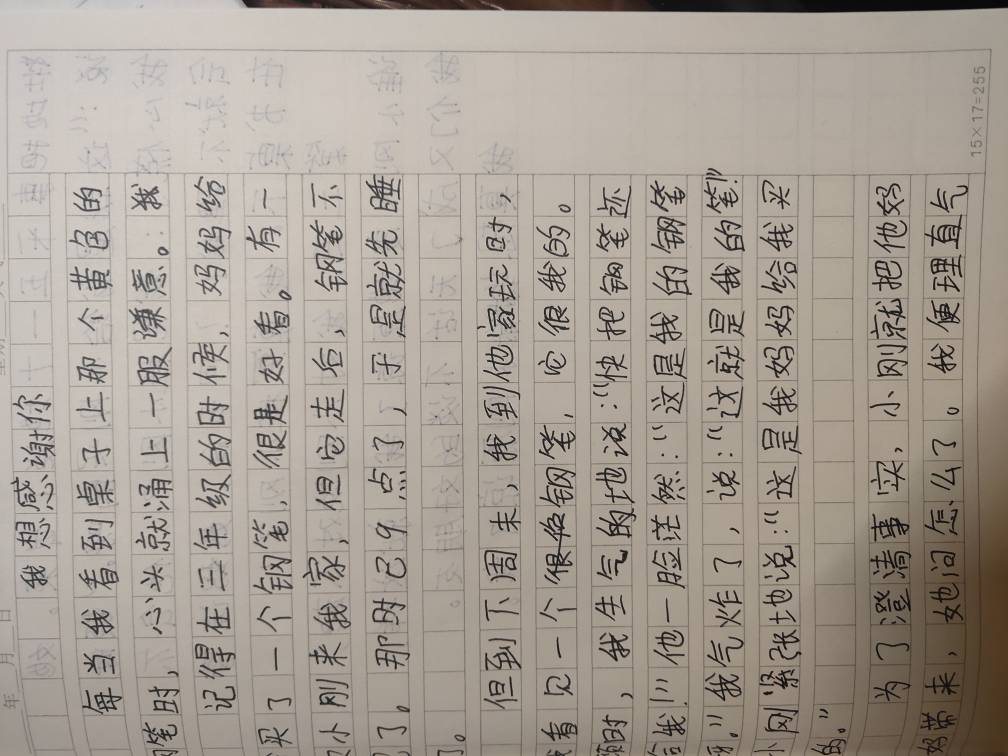 年 月 日
我想感谢你
每当我看到桌子上那个黄色的
笔时，心头就涌上一服谦意。我
记得在三年级的时候，妈妈给
买了一个钢笔，很是好看。有一
次小刚来我家，但它走后，钢笔不
见了。那时已9点了，于是就先睡
了。
但到下周末，我到他家玩时，
我看见一个钢笔，它很我的。
顿时，我生气的地说：“快把钢笔还
给我！”他一脸茫然：“这是我的钢笔
啊。”我气炸了，说：“这就是我的笔！”
小刚紧张地说：“这是我妈妈给我买
的。”
为了澄清事实，小刚就把他妈
妈带来，她问怎么了。我便理直气
15×17=255